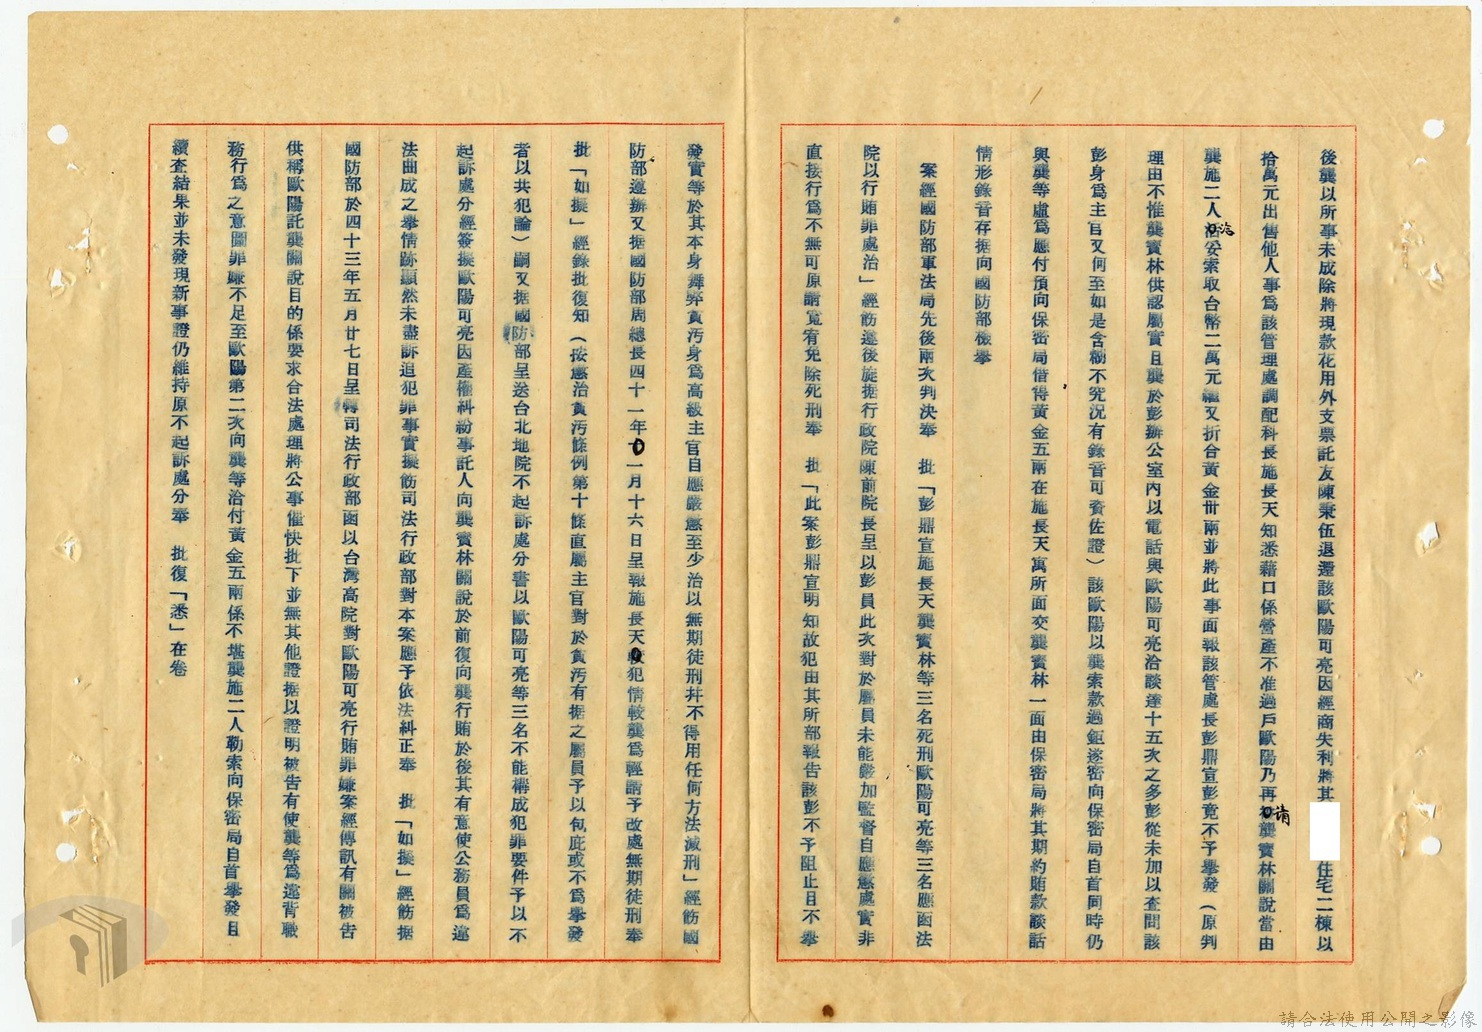 後龔以所事未成除將現款花用外支票託友陳秉伍退還該歐陽可亮因經商失利將其 住宅二棟以
拾萬元出售他人事為該管理處調配科長施長天知悉藉口係營產不准過戶歐陽乃再請龔賓林關說當由
龔施二人洽妥索取台幣二萬元繼又折合黃金卅兩並將此事面報該管處長彭鼎宣彭竟不予舉發（原判
理由不惟龔賓林供認屬實且龔於彭辦公室內以電話與歐陽可亮洽談達十五次之多彭從未加以查問該
彭身為主官又何至如是含糊不究況有錄音可資佐證）該歐陽以龔索款過鉅遂密向保密局自首同時仍
與龔等虛為應付預向保密局借得黃金五兩在施長天寓所面交龔賓林一面由保密局將其期約賄款談話
情形錄音存据向國防部檢舉
案經國防部軍法局先後兩次判決奉 批「彭鼎宣施長天龔賓林等三名死刑歐陽可亮等三名應函法
院以行賄罪處治」經飭遵後旋据行政院陳前院長呈以彭員此次對於屬員未能嚴加監督自應懲處實非
直接行為不無可原請寬宥免除死刑奉 批「此案彭鼎宣明知故犯由其所部報告該彭不予阻止且不舉
發實等於其本身舞弊貪污身為高級主官自應嚴懲至少治以無期徒刑幷不得用任何方法減刑」經飭國
防部遵辦又据國防部周總長四十一年十一月十六日呈報施長天較犯情較龔為輕請予改處無期徒刑奉
批「如擬」經錄批復知（按懲治貪污條例第十條直屬主官對於貪污有据之屬員予以包庇或不為舉發
者以共犯論）嗣又据國防部呈送台北地院不起訴處分書以歐陽可亮等三名不能構成犯罪要件予以不
起訴處分經簽擬歐陽可亮因產權糾紛事託人向龔賓林關說於前復向龔行賄於後其有意使公務員為違
法曲成之舉情跡顯然未盡訴追犯罪事實擬飭司法行政部對本案應予依法糾正奉 批「如擬」經飭据
國防部於四十三年五月廿七日呈轉司法行政部函以台灣高院對歐陽可亮行賄罪嫌案經傳訊有關被告
供稱歐陽託龔關說目的係要求合法處理將公事催快批下並無其他證据以證明被告有使龔等為違背職
務行為之意圖罪嫌不足至歐陽第二次向龔等洽付黃金五兩係不堪龔施二人勒索向保密局自首舉發且
續查結果並未發現新事證仍維持原不起訴處分奉 批復「悉」在卷
請合法使用公開之影像